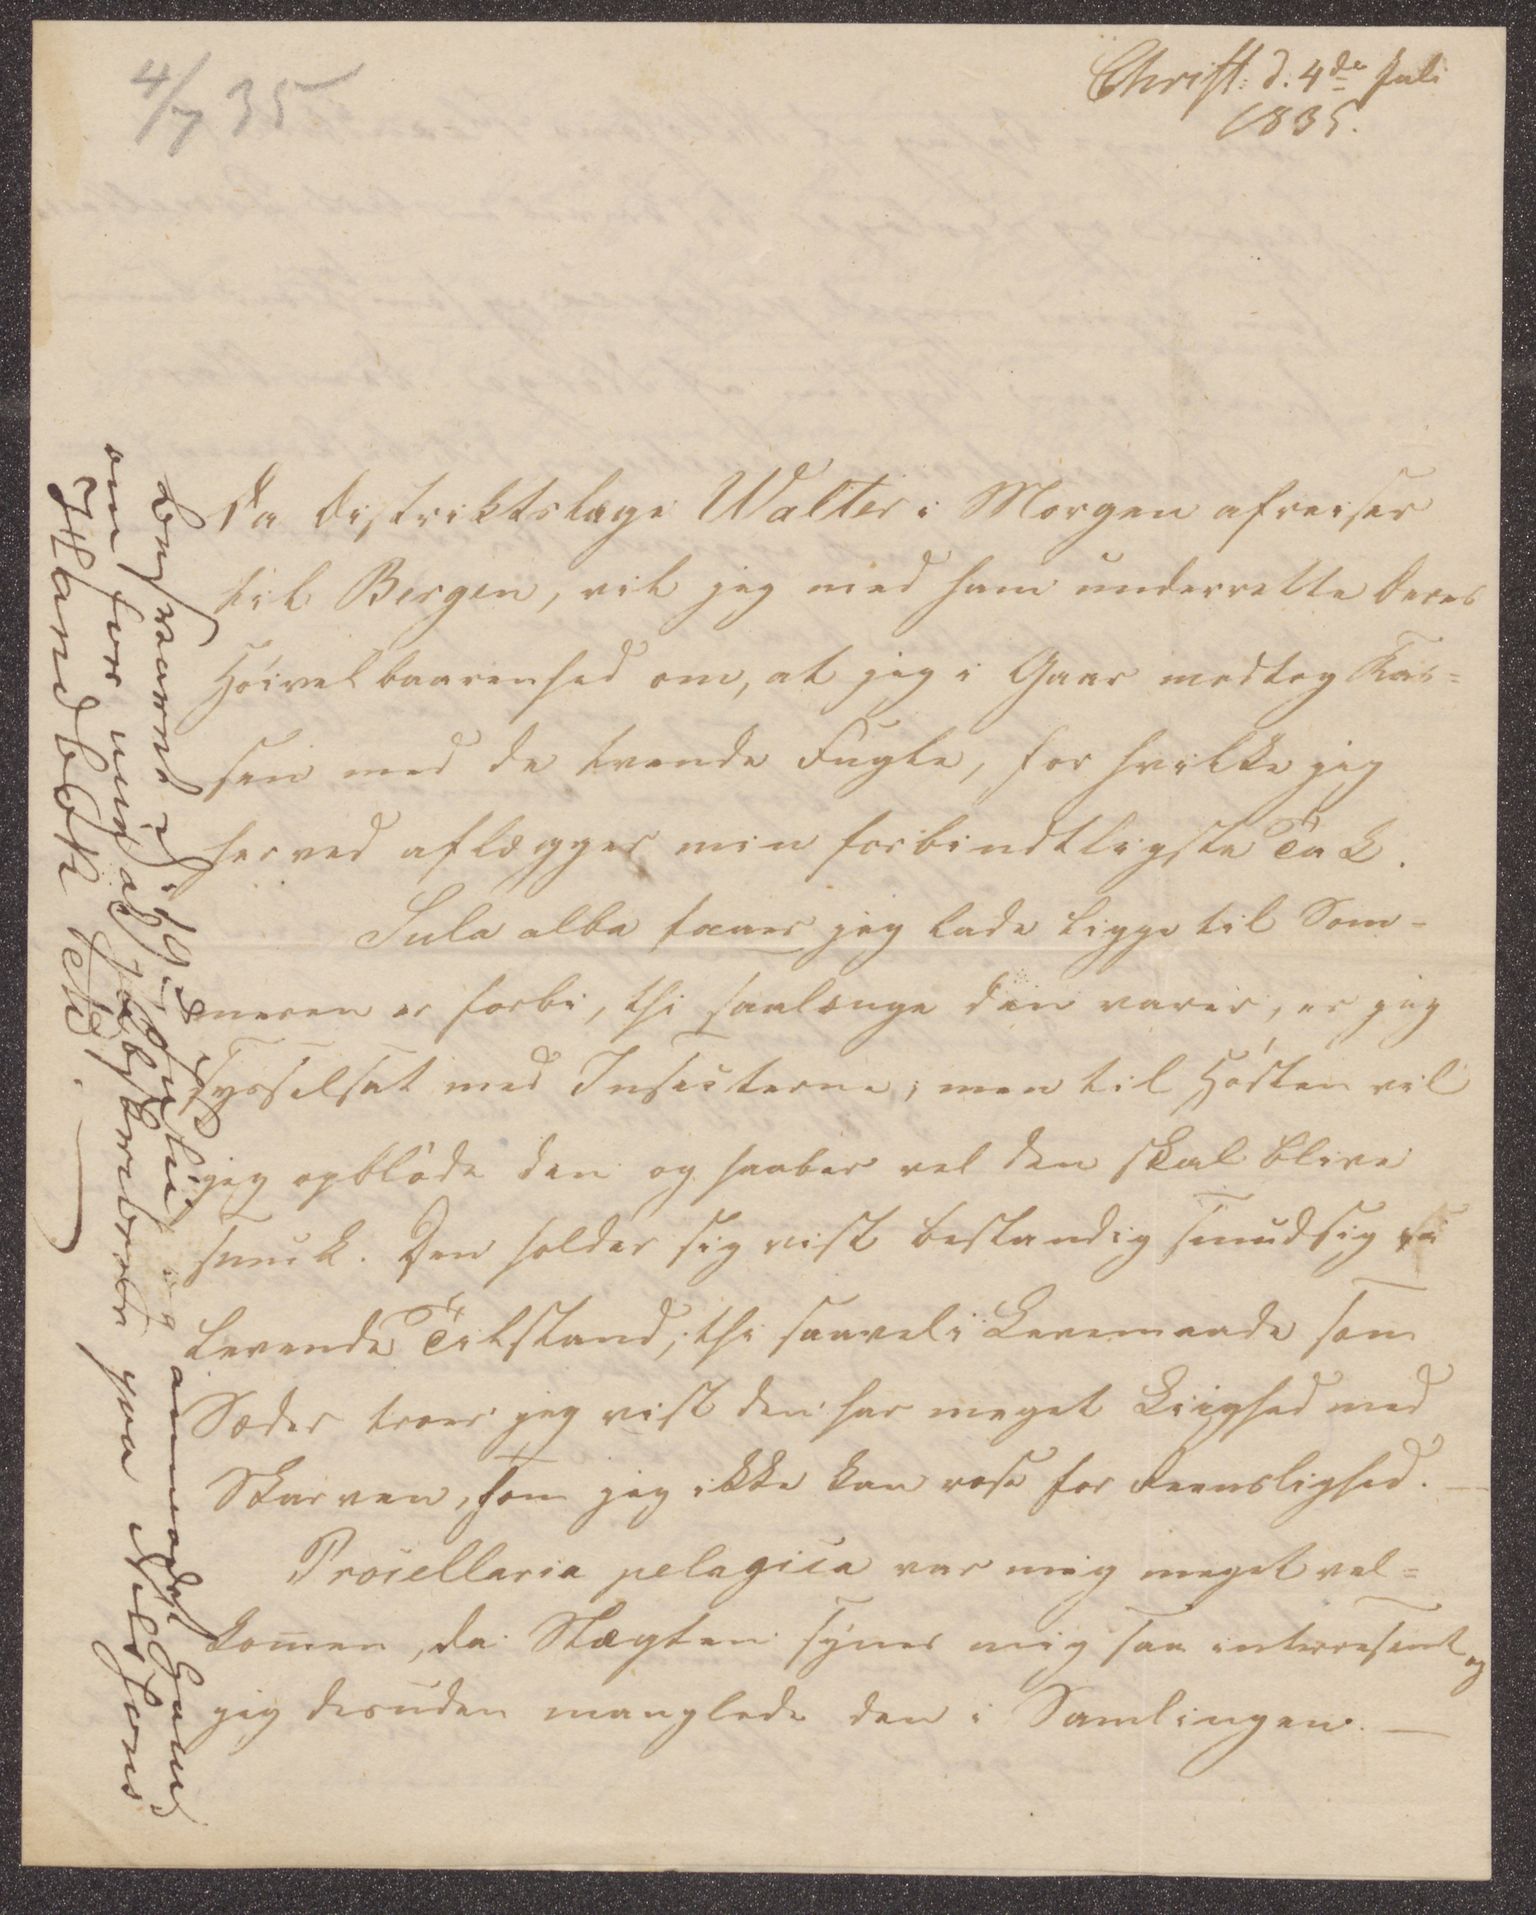 4/7 35
Christ: d: 4de Juli
1835.
Da Distriktslæge Walter i Morgen afreiser
til Bergen, vil jeg med ham underrette Deres
Höivelbaarenhed om, at jeg i Gaar modtog Kas=
sen med de tvende Fugle, for hvilke jeg
herved aflægger min forbindtligste Tak.
Sula alba troer jeg lade ligge til Som-
meren er forbi, thi saalænge den varer, er jeg
sysselsat med Insecterne; men til Hösten vil
jeg opblöde den og haaber vel den skal blive
smuk. Den holder sig vist bestandig smudsig i
levende Tilstand, thi saavel i Levemaade som
Sæder troer jeg vist den har meget Liighed med
Skarven, som jeg ikke kan rose for Reenslighed. —
Procellaria pelagica var mig meget vel=
kommen, da Slægten synes mig saa interresent og
jeg desuden manglede den i Samlingen. —
besvaret d. 19d Julii og anmodet ham
om for mig at subskribere paa Nilsons
Handbok etc.